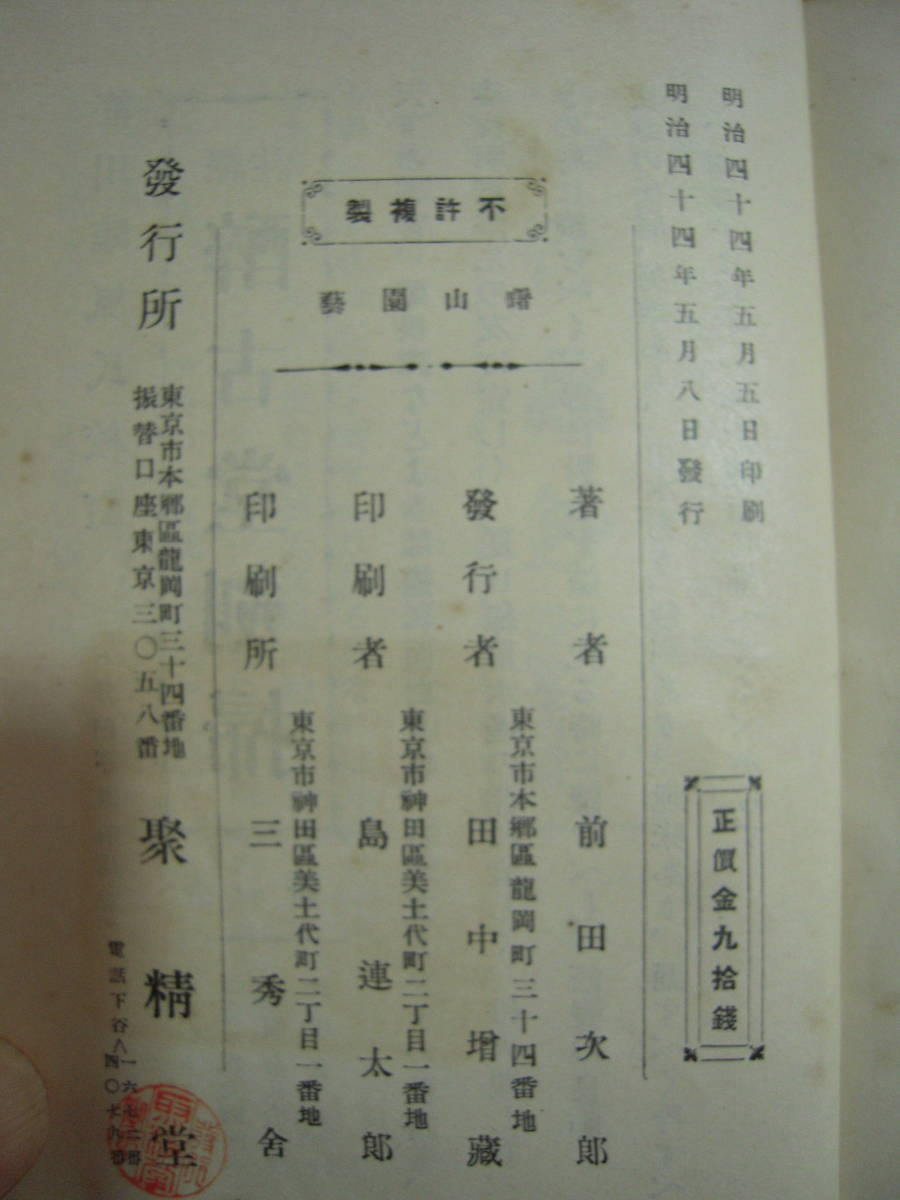 明治四十四年五月五日印刷
明治四十四年五月八日發行
正價金九拾錢
不許複製
曙山園藝
著者 前田次郎
東京市本鄉區龍岡町三十四番地
發行者 田中增藏
東京市神田區美土代町二丁目一番地
印刷者 島連太郎
東京市神田區美土代町二丁目一番地
印刷所 三秀舍
發行所
東京市本鄉區龍岡町三十四番地
振替口座東京三〇五八番
聚精堂
電話下谷